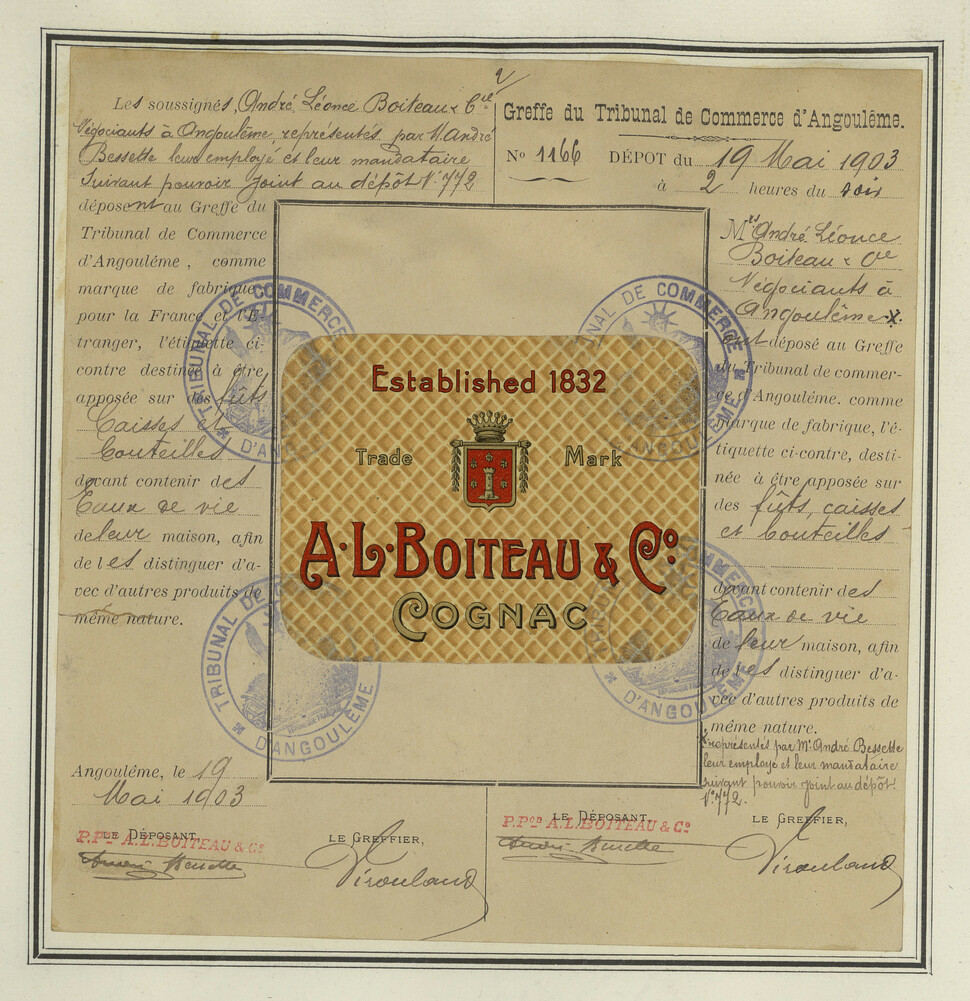 Les soussignés, André Léonce Boiteau & Cie
Négociants à Angoulême, représentés par M. André
Bessette leur employé et leur mandataire
Suivant pouvoir joint au dépôt N° 772
déposent au Greffe du
Tribunal de Commerce
d'Angoulême, comme
marque de fabrique
pour la France et l'É-
tranger, l'étiquette ci-
contre destinée à être
apposée sur des fûts
Caisses et
Bouteilles
devant contenir des
Eaux de vie
de leur maison, afin
de les distinguer d'a-
vec d'autres produits de
même nature.
Angoulême, le 19
Mai 1903
LE DÉPOSANT,
P. Pon A. L. BOITEAU & Co
André Bessette
LE GREFFIER,
Established 1832
Trade Mark
A·L·BOITEAU & Co
COGNAC
TRIBUNAL DE COMMERCE
D'ANGOULÊME
TRIBUNAL DE COMMERCE
D'ANGOULÊME
TRIBUNAL DE COMMERCE
D'ANGOULÊME
TRIBUNAL DE COMMERCE
D'ANGOULÊME
Greffe du Tribunal de Commerce d'Angoulême.
No 1166 DÉPOT du 19 Mai 1903
à 2 heures du soir
Mes André Léonce
Boiteau & Cie
Négociants à
Angoulême X.
ont déposé au Greffe
du Tribunal de commer-
ce d'Angoulême. comme
marque de fabrique, l'é-
tiquette ci-contre, desti-
née à être apposée sur
des fûts, caisses
et bouteilles
devant contenir des
Eaux de vie
de leur maison, afin
de les distinguer d'a-
vec d'autres produits de
même nature.
X représentés par Mr André Bessette
leur employé et leur mandataire
suivant pouvoir joint au dépôt
N° 772.
LE DÉPOSANT,
P. Pon A. L. BOITEAU & Co
André Bessette
LE GREFFIER,